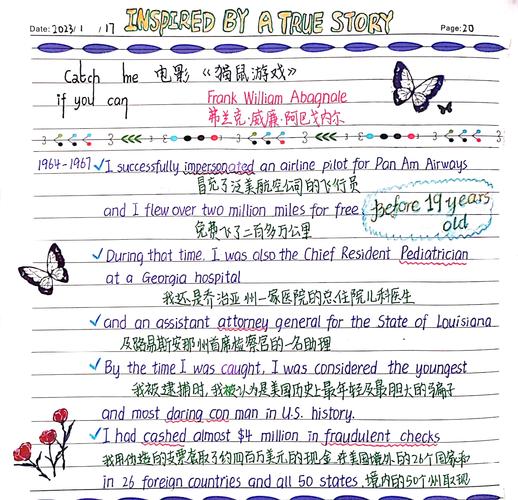 INSPIRED BY A TRUE STORY
Date: 2023/1 /17
Page: 20
Catch me 电影《猫鼠游戏》
if you can
Frank William Abagnale
弗兰克·威廉·阿巴戈内尔
1964-1967 ✓ I successfully impersonated an airline pilot for Pan Am Airways
冒充了泛美航空公司的飞行员
and I flew over two million miles for free
免费飞了二百多万公里
Before 19 years
old
✓ During that time, I was also the Chief Resident Pediatrician
at a Georgia hospital
我还是乔治亚州一家医院的总住院儿科医生
✓ and an assistant attorney general for the State of Louisiana
及路易斯安那州首席检察官的一名助理
✓ By the time I was caught, I was considered the youngest
我被逮捕时,我被认为是美国历史上最年轻及最胆大的骗子
and most daring con man in U.S. history.
✓ I had cashed almost $4 million in fraudulent checks
我用伪造的支票套取了约四百万美元的现金 在美国境外的26个国家和
in 26 foreign countries and all 50 states 境内的50个州取现